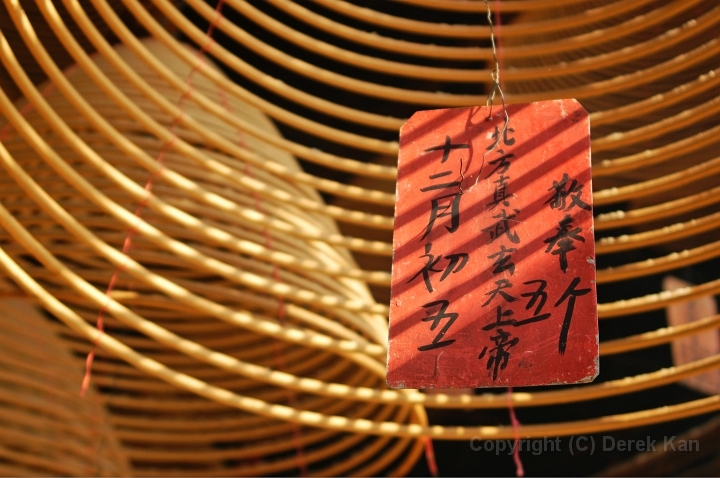 敬奉
五个
北方真武玄天上帝
十二月初五
Copyright (C) Derek Kan